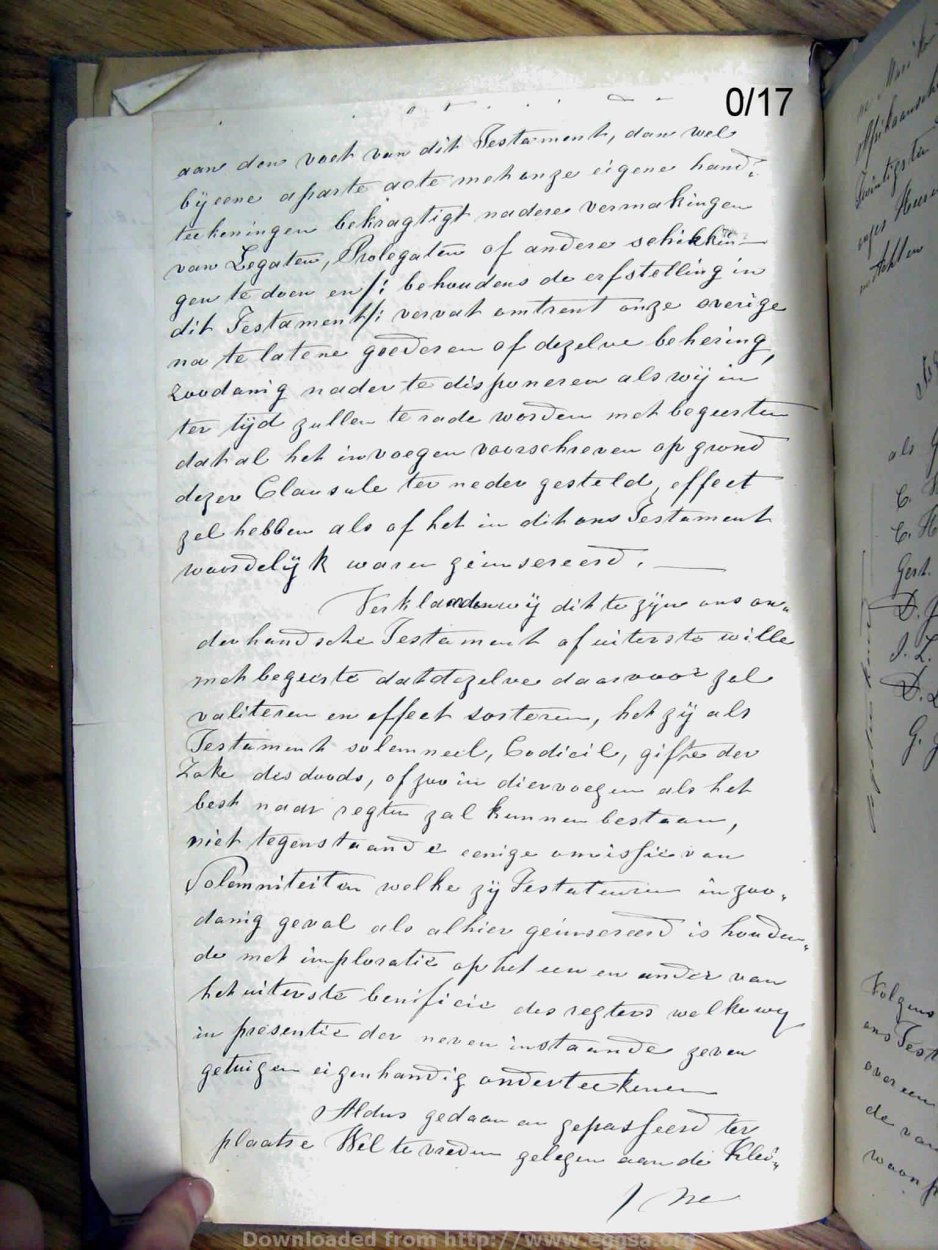 0/17
aan den voet van dit Testament, dan wel
bij eene aparte acte met onze eigene hand„
teekeningen bekragtigt nadere vermakingen
van Legaten, Prelegaten of andere schikkin
gen te doen en /: behoudens de erfstelling in
dit Testament /: vervat omtrent onze overige
na te latene goederen of dezelve behering,
zoodanig nader te disponeren als wij in
ter tijd zullen te rade worden met begeerten
dat al het invoegen voorschreven op grond
dezer Clausule ter neder gesteld, effect
zal hebben als of het in dit ons Testament
woordelijk waren geinsereerd. —
Verklarende wij dit te zijn ons on„
derhandsche Testament of uiterste wille
met begeerte dat dezelve daarvoor zal
valiteren en effect sorteren, het zij als
Testament solemneel, Codicil, gifte der
Zake des doods, of zoo in diervoegen als het
best naar regten zal kunnen bestaan,
niet tegenstaande eenige omissie van
Solemniteiten welke zij Testateuren in zoo„
danig geval als alhier geinsereerd is houden„
de met imploratie op het een en ander van
het uiterste benificie des regters welke wy
in presentie der neven instaande zeven
getuigen eigenhandig onderteekenen
Aldus gedaan en gepasseerd ter
plaatse Wel te vreden gelegen aan de Klei„
/ ne
als
C.
C. H
Gert.
D. J
J. L.
G. J
Volgens
ons Test
over een
de van
woon p
Downloaded from http://www.eggsa.org